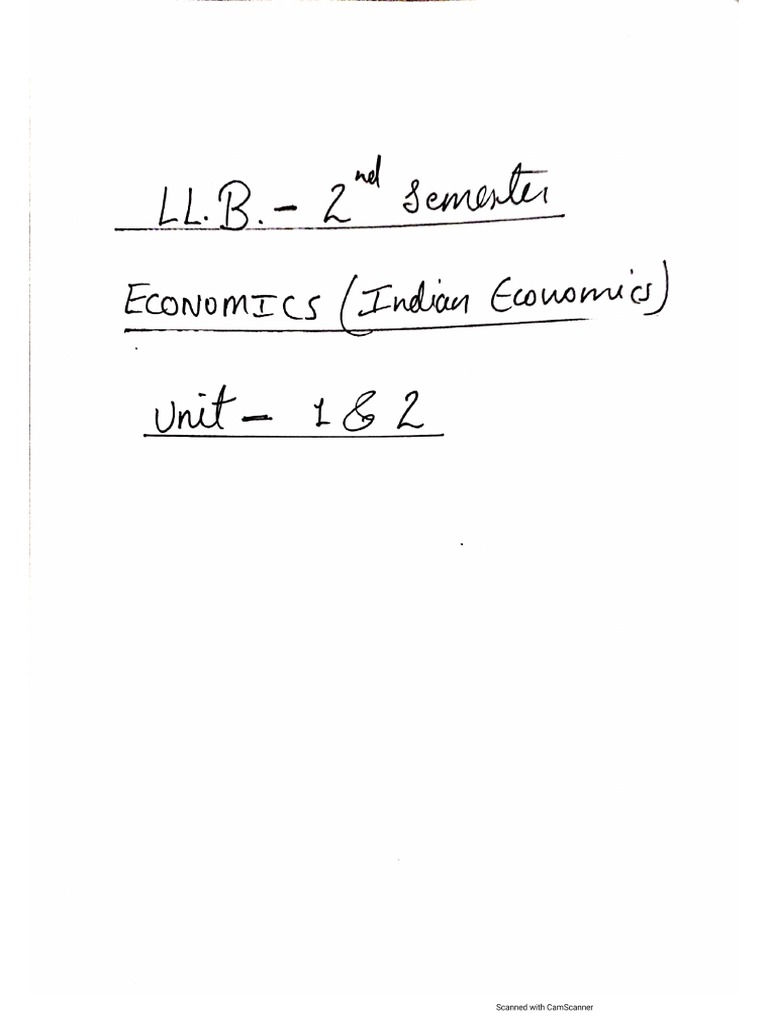 LL.B. - 2nd Semester
ECONOMICS (Indian Economics)
Unit - 1 & 2
Scanned with CamScanner